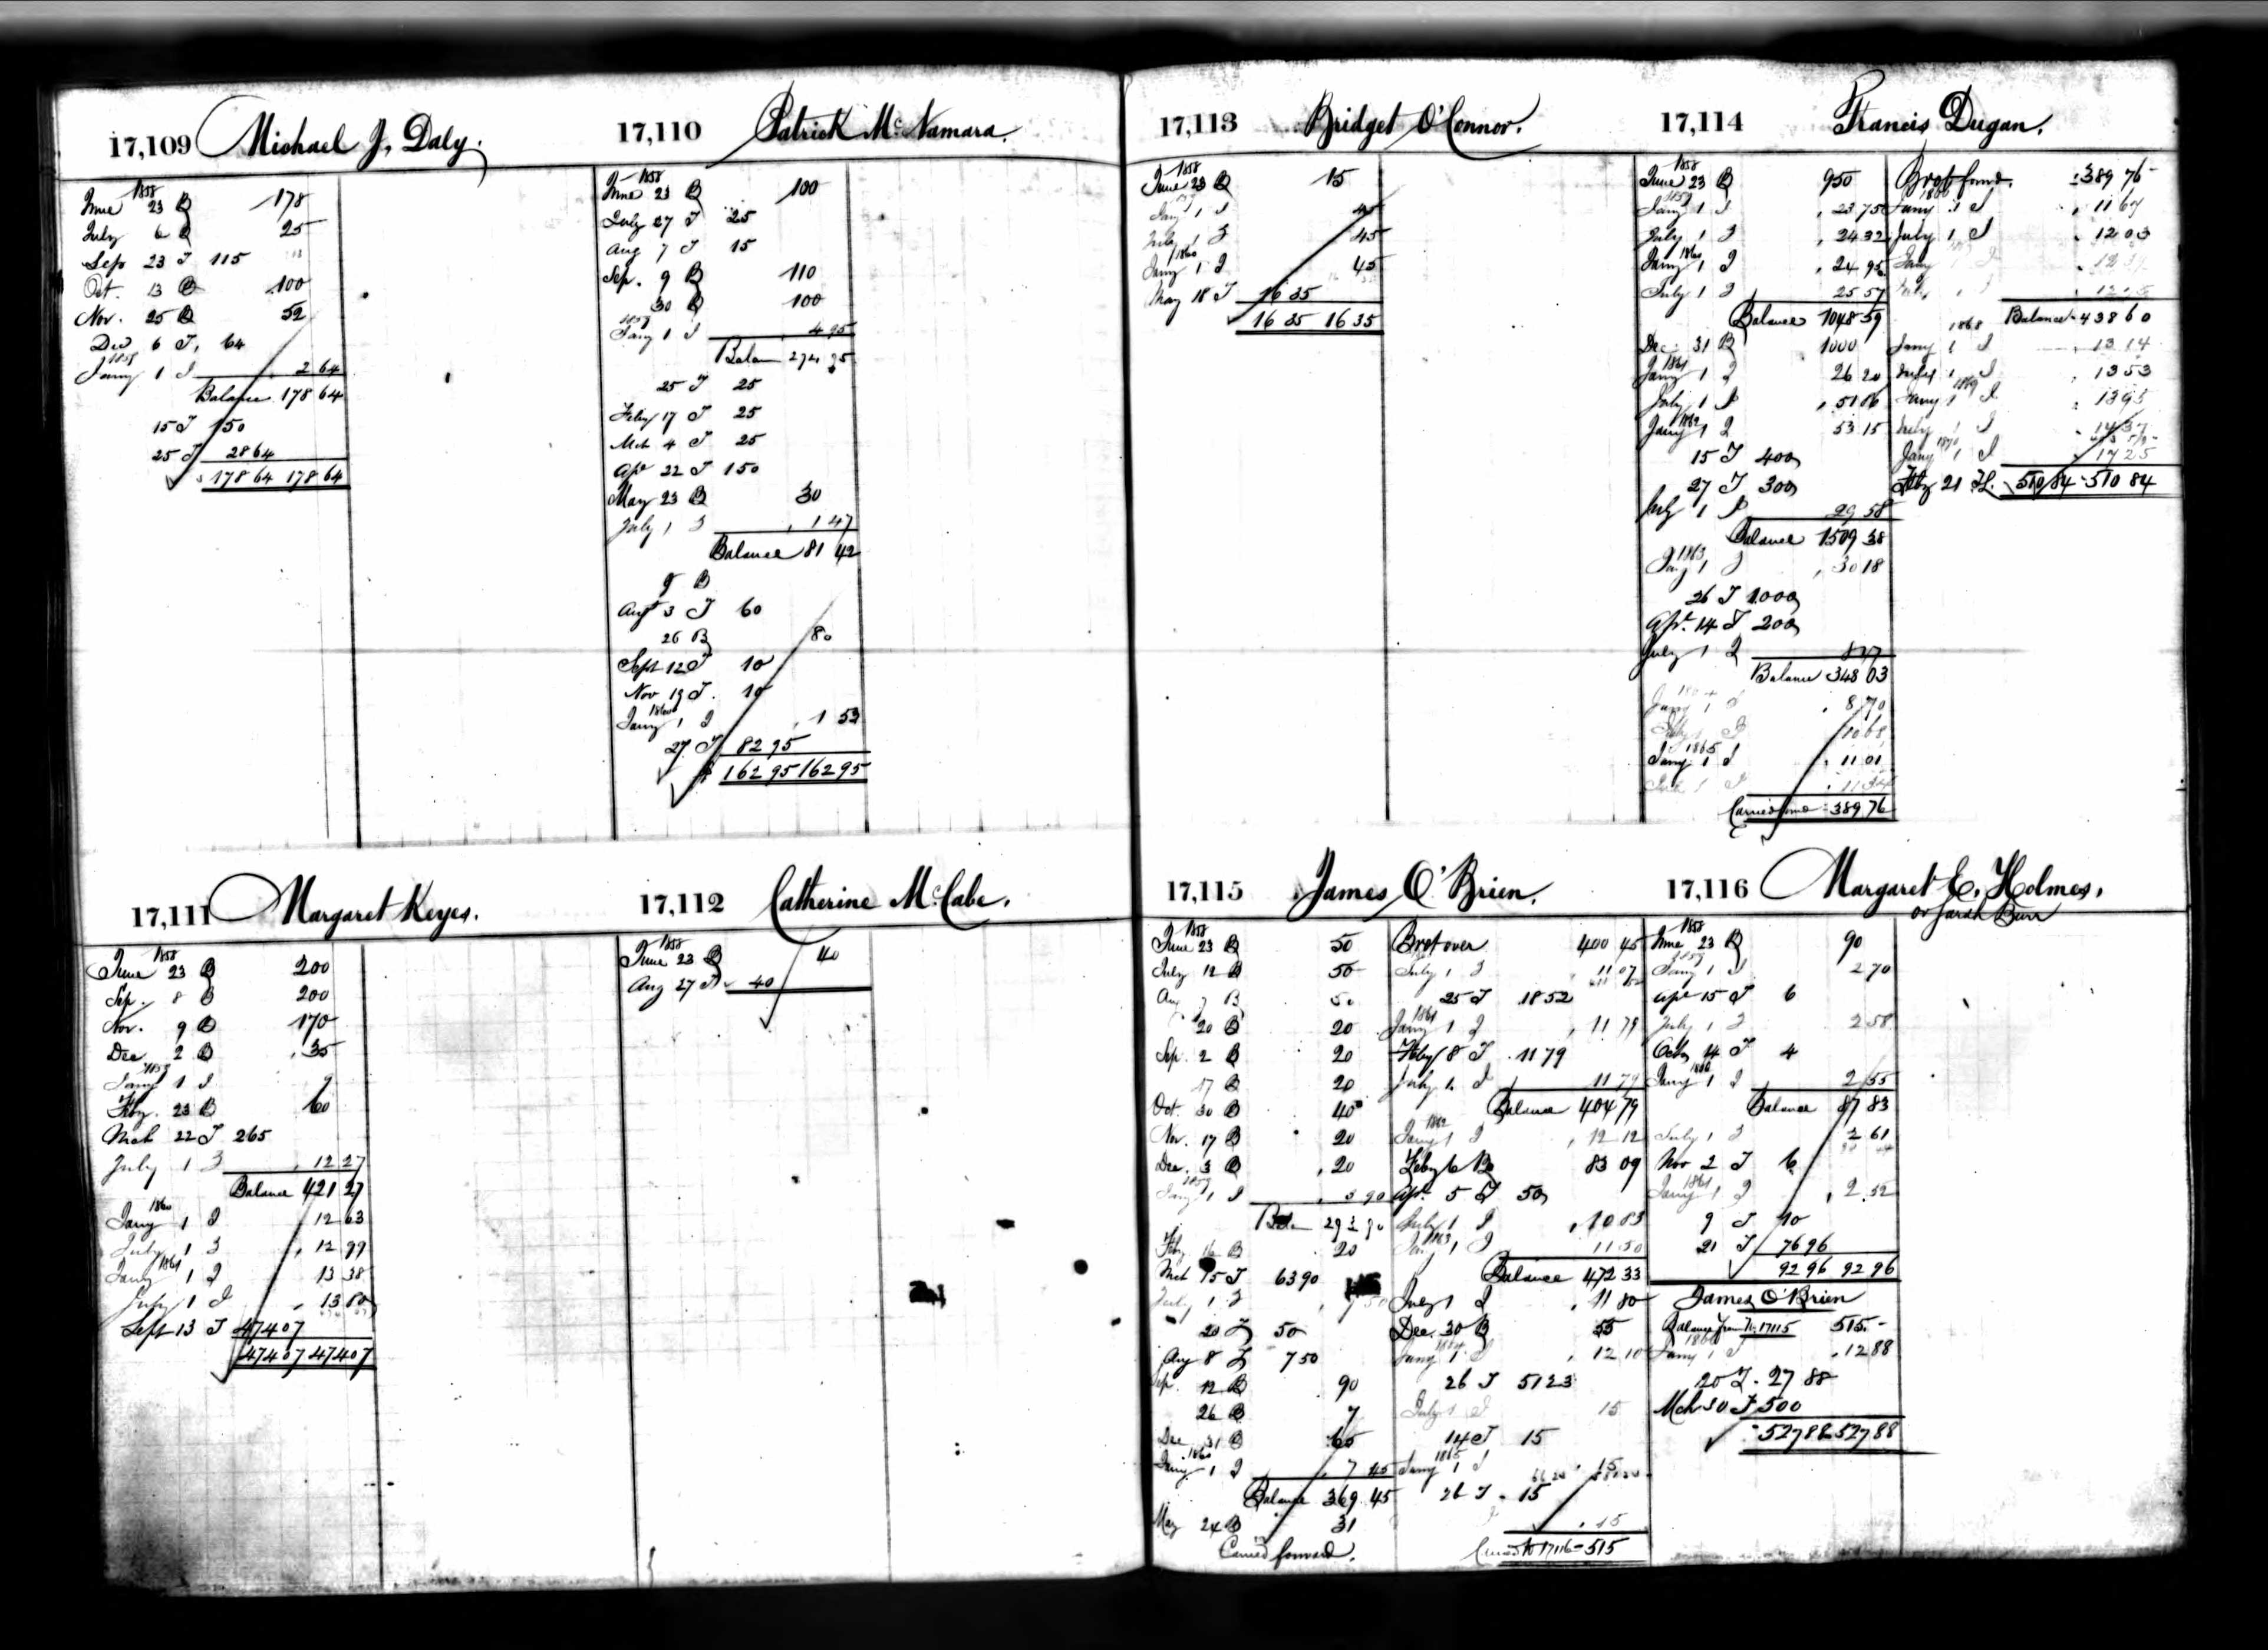 17,109 Michael J. Daly.
1858
June 23 B 178
July 6 B 25
Sep 23 T 115
Oct. 13 B 100
Nov. 25 B 52
Dec 6 T, 64
1859
Jany 1 I 2 64
Balance 178 64
15 T 150
25 T 28 64
178 64 178 64
17,110 Patrick McNamara.
1858
June 23 B 100
July 27 T 25
Aug 7 T 15
Sep. 9 B 110
30 B 100
1859
Jany 1 I 4 95
Balan 274 95
25 T 25
Feby 17 T 25
Mch 4 T 25
Apr 22 T 150
May 23 B 30
July 1 I 1 47
Balance 81 42
9 B
Augt 3 T 60
26 B 80
Sept 12 T 10
Nov 19 T. 10
1860
Jany 1 I 1 53
27 T 82 95
$ 162 95 162 95
17,111 Margaret Keyes.
1858
June 23 B 200
Sep. 8 B 200
Nov. 9 B 170
Dec 2 B 35
1859
Jany 1 I 9
Feby. 23 B 60
Mch 22 T 265
July 1 I 12 27
Balance 421 27
1860
Jany 1 I 12 63
July 1 I 12 99
1861
Jany 1 I 13 38
July 1 I 13 80
Sept 13 T 474 07
474 07 474 07
17,112 Catherine McCabe.
1858
June 23 B 40
Aug 27 T 40
17,113 Bridget O'Connor.
1858
June 23 B 15
1859
Jany 1 I 45
July 1 I 45
1860
Jany 1 I 45
May 18 T 16 35
16 35 16 35
17,114 Francis Dugan.
1858
June 23 B 950
1859
Jany 1 I 23 75
July 1 I 24 32
1860
Jany 1 I 24 95
July 1 I 25 57
Balance 1048 59
Dec. 31 B 1000
1861
Jany 1 I 26 20
July 1 I 51 86
1862
Jany 1 I 53 15
15 T 400
27 T 300
July 1 I 29 58
Balance 1509 38
1863
Jany 1 I 30 18
26 T 1000
Apr. 14 T 200
July 1 I 8 47
Balance 348 03
Jany 1 I 8 70
July 1 I 10 68
1865
Jany 1 I 11 01
July 1 I 11 34
Carried forwd 389 76
Brot forwd. 389 76
Jany 1 I 11 67
July 1 I 12 03
Jany
Balance 438 60
1868
Jany 1 I 13 14
July 1 I 13 53
1869
Jany 1 I 13 95
July 1 I 14 37
1870
Jany 1 I 17 25
Feby 21 T. 510 84 510 84
17,115 James O'Brien.
1858
June 23 B 50
July 12 B 50
Aug 7 B 50
20 B 20
Sep. 2 B 20
17 B 20
Oct. 30 B 40
Nov. 17 B 20
Dec. 3 B 20
1859
Jany 1 I 3 90
Balan 293 90
Feby 16 B 20
Mch 15 T 63 90
July 1 I 7 50
20 T 50
Aug 8 T 7 50
Sep. 12 B 90
26 B 7
Dec 31 B 65
1860
Jany 1 I 7 45
Balance 369 45
May 24 B 31
Carried forward.
Brot over 400 45
July 1 I 11 07
25 T 18 52
1861
Jany 1 I 11 79
Feby 8 T 11 79
July 1 I 11 79
Balance 404 79
1862
Jany 1 I 12 12
Feby 6 B 83 09
Apr. 5 T 50
July 1 I 10 83
Jany 1 I 11 50
Balance 472 33
July 1 I 11 80
Dec. 30 B 55
Jany 1 I 12 10
26 T 51 23
July 1 I 15
14 T 15
1865
Jany 1 I 15
26 T 15
15
Carried to 17116 515
17,116 Margaret E. Holmes,
or Sarah Burr
1858
June 23 B 90
1859
Jany 1 I 2 70
Apl 15 T 6
July 1 I 2 58
Octr 14 T 4
1860
Jany 1 I 2 55
Balance 87 83
July 1 I 2 61
Nov 2 T 6
1861
Jany 1 I 2 52
9 T 10
21 T 76 96
92 96 92 96
James O'Brien
Balance from No. 17115 515.-
Jany 1 I 12 88
20 T. 27 88
Mch 30 T 500
527 88 527 88